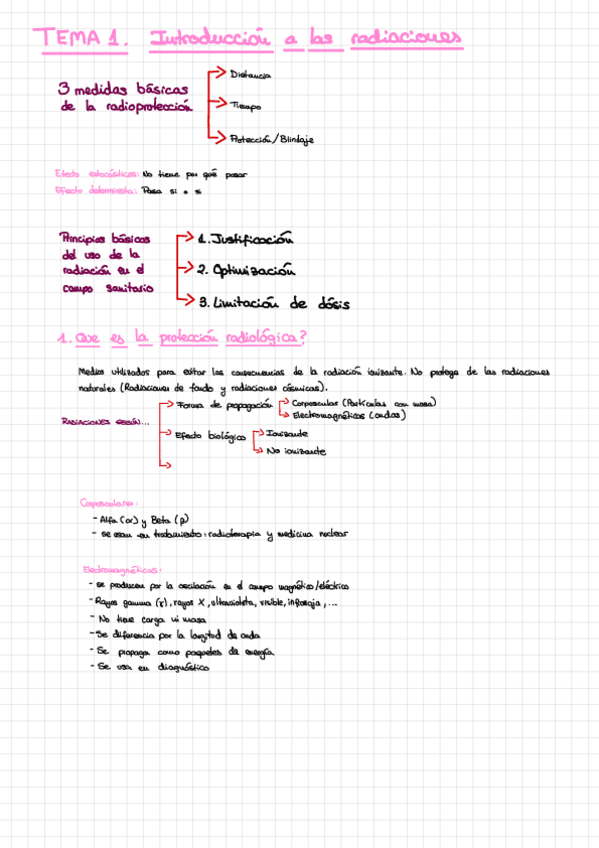 TEMA 1. Introducción a las radiaciones
3 medidas básicas
de la radioprotección
Distancia
Tiempo
Protección/Blindaje
Efecto estocásticos: No tiene por qué pasar
Efecto determinista: Pasa si o si
Principios básicos
del uso de la
radiación en el
campo sanitario
1. Justificación
2. Optimización
3. Limitación de dósis
1. Que es la protección radiológica?
Medios utilizados para evitar las consecuencias de la radiación ionizante. No protege de las radiaciones
naturales (Radiaciones de fondo y radiaciones cósmicas).
RADIACIONES SEGÚN...
Forma de propagación
Corpuscular (Partículas con masa)
Electromagnéticas (ondas)
Efecto biológico
Ionizante
No ionizante
Corpusculares:
- Alfa (α) y Beta (β)
- se usan en tratamiento: radioterapia y medicina nuclear
Electromagnéticas:
- se producen por la oscilación en el campo magnético/eléctrico
- Rayos gamma (γ), rayos X, ultravioleta, visible, infrarroja, ...
- No tiene carga ni masa
- Se diferencia por la longitud de onda
- Se propaga como paquetes de energía
- Se usa en diagnóstico